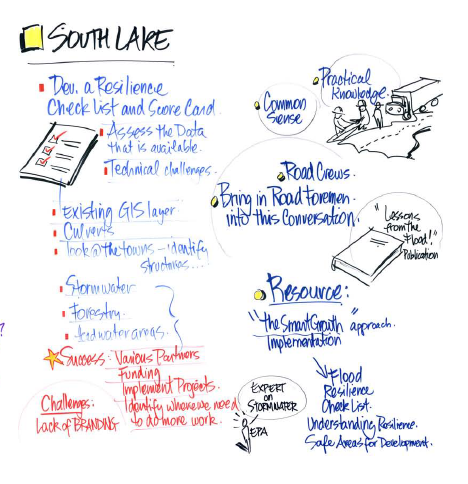 SOUTH LAKE
Dev. a Resilience
Check List and Score Card.
Assess the Data
that is available.
Technical challenges.
Existing GIS layer
Culverts
Took @ the towns - identify
structures....
Stormwater
Forestry.
Headwater areas.
Success: Various Partners
Funding
Implement Projects.
Identify where we need
to do more work.
Challenges:
Lack of BRANDING
Practical
Knowledge.
Common
Sense
Road Crews.
Bring in Road Foremen
into this Conversation.
"Lessons
from the
Flood!"
Publication
Resource:
"the Smart Growth" approach.
Implementation
Flood
Resilience
Check List.
Understanding Resilience.
Safe Areas for Development.
EXPERT
on
STORMWATER
EPA
?